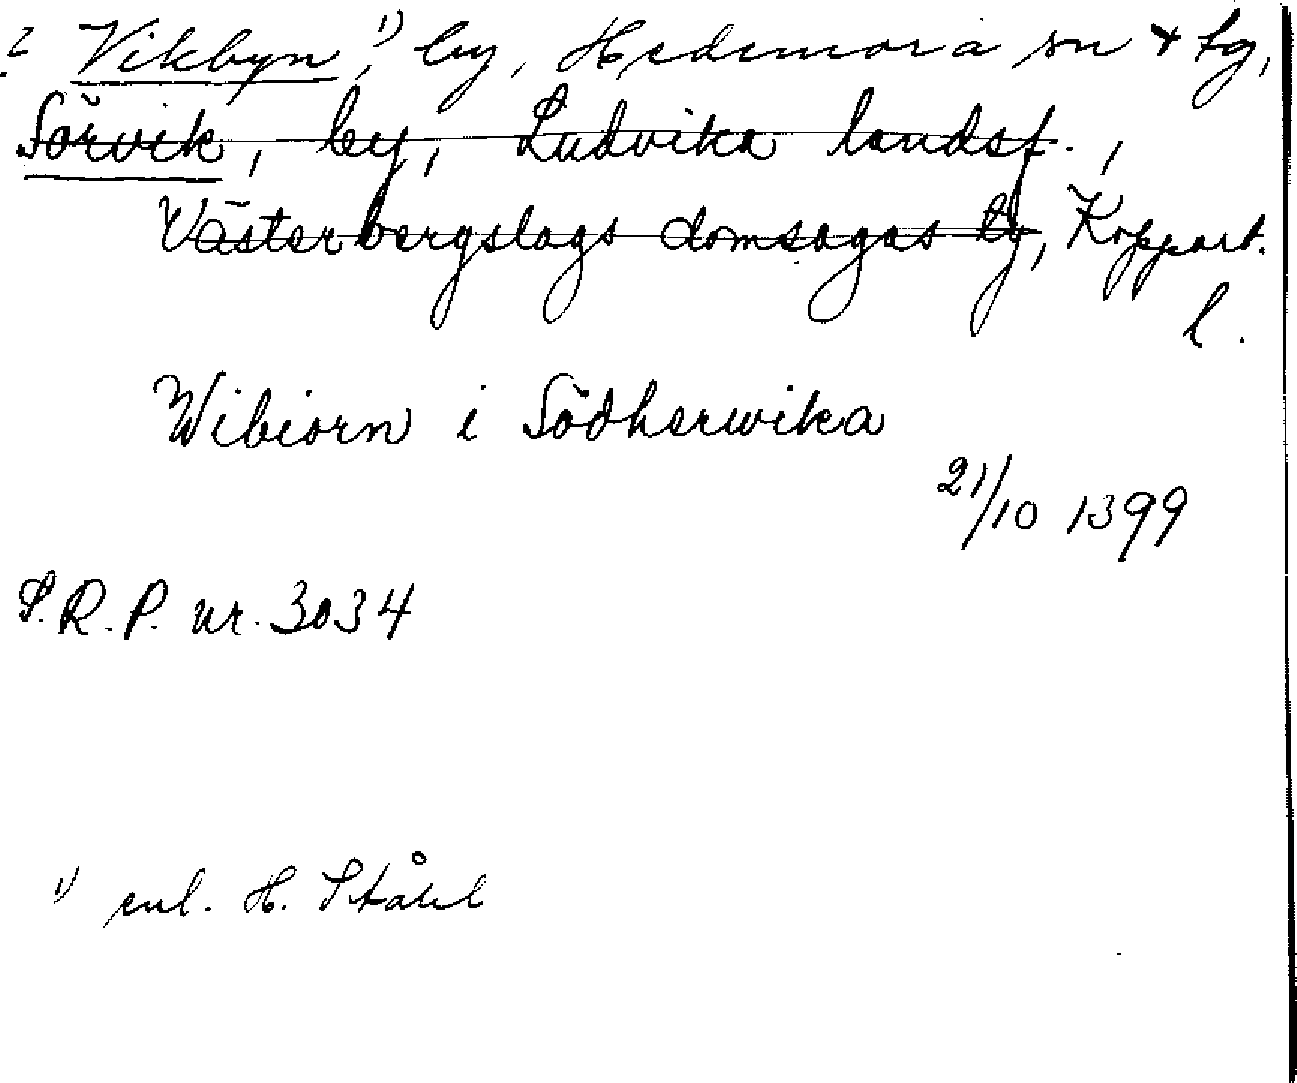 ? Vikbyn, 1) by, Hedemora sn & tg,
Sörvik, by, Ludvika landsf.,
Västerbergslags domsagas tg, Kopparb.
l.
Wibiorn i Södherwika
21/10 1399
S.R.P. nr. 3034
1) enl. H. Ståhl